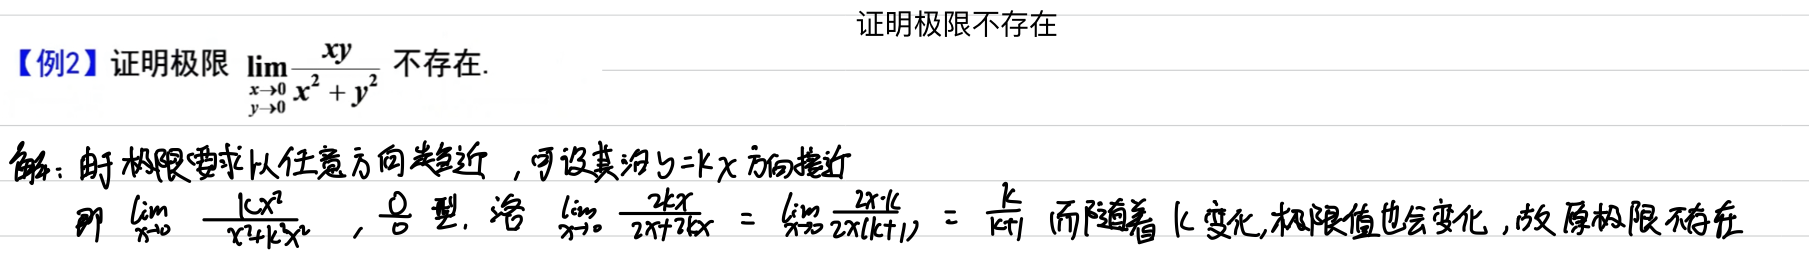 证明极限不存在
【例2】证明极限 lim x→0 y→0 xy/(x²+y²) 不存在.
解：由于极限要求以任意方向趋近，可设其沿y=kx方向接近
即 lim x→0 kx²/(x²+k²x²)，0/0 型. 洛 lim x→0 2kx/(2x+2kx) = lim x→0 2x·k/(2x(k+1)) = k/(k+1) 而随着 k 变化,极限值也会变化，故原极限不存在